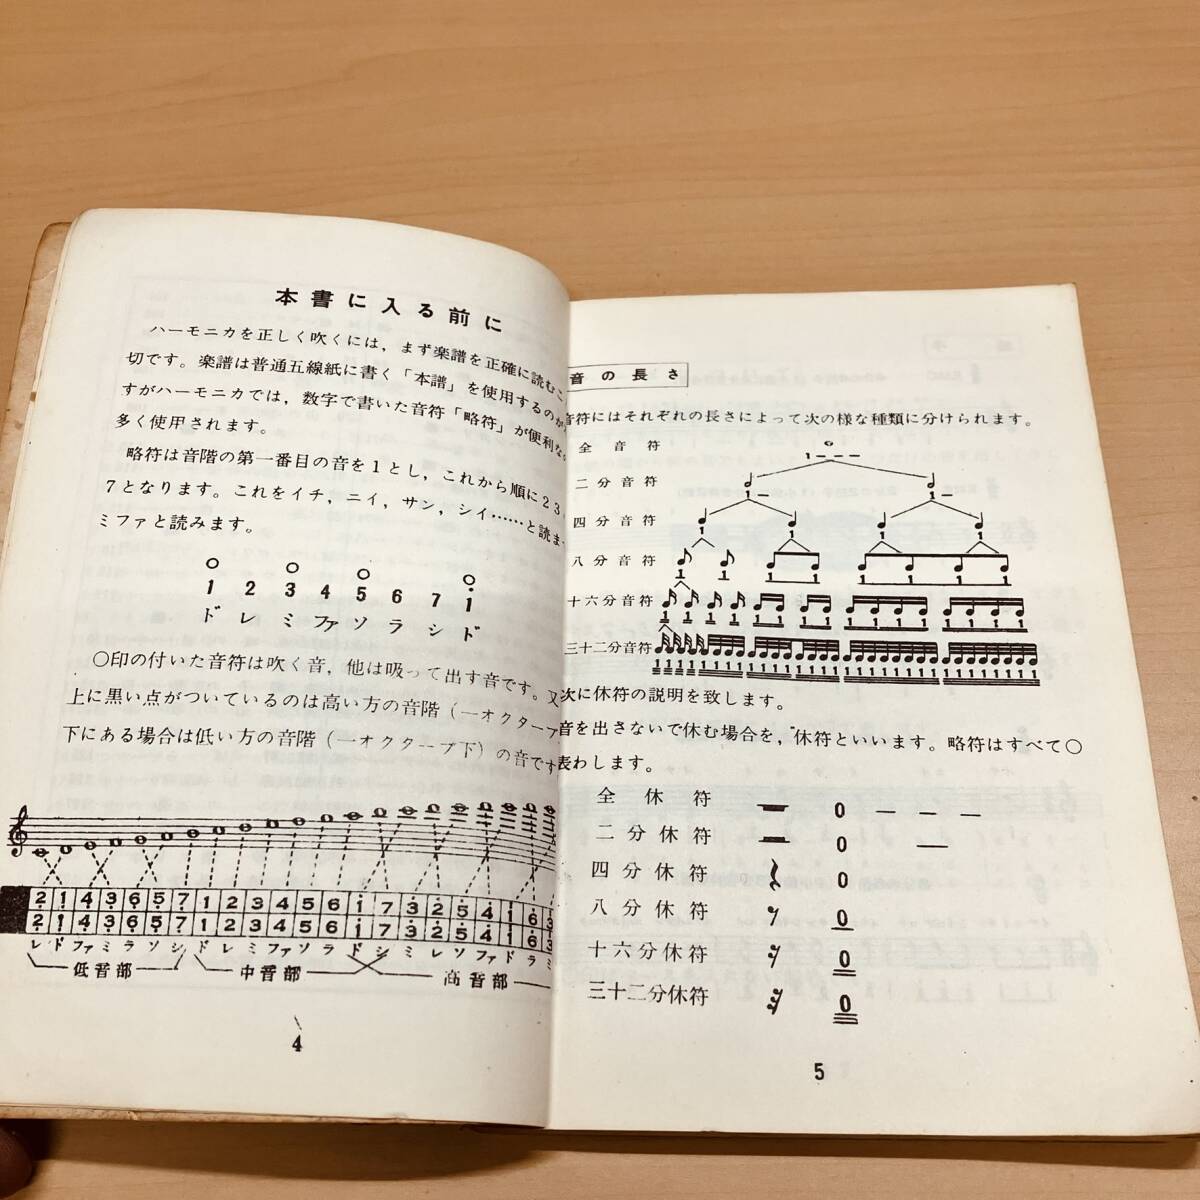 本書に入る前に
ハーモニカを正しく吹くには，まず楽譜を正確に読むこ
切です。楽譜は普通五線紙に書く「本譜」を使用するの
すがハーモニカでは，数字で書いた音符「略符」が便利な
多く使用されます。
略符は音階の第一番目の音を１とし，これから順に２３
７となります。これをイチ，ニイ，サン，シイ……と読ま
ミファと読みます。
○ ○ ○ ○
1 2 3 4 5 6 7 1
ド レ ミ ファ ソ ラ シ ド
○印の付いた音符は吹く音，他は吸って出す音です。又
上に黒い点がついているのは高い方の音階（一オクターブ
下にある場合は低い方の音階（一オクターブ下）の音です
2 1 4 3 6 5 7 1 2 3 4 5 6 1 7 3 2 5 4 1 6 3
2 1 4 3 6 5 7 1 2 3 4 5 6 1 7 3 2 5 4 1 6 3
レ ド ファ ミ ラ ソ シ ド レ ミ ファ ソ ラ ド シ ミ レ ソ ファ ド ラ ミ
低音部 中音部 高音部
4
音の長さ
音符にはそれぞれの長さによって次の様な種類に分けられます。
全音符
1 - - -
二分音符
1 - 1 -
四分音符
1 1 1 1
八分音符
1 1 1 1 1 1 1 1
十六分音符
1 1 1 1 1 1 1 1 1 1 1 1 1 1 1 1
三十二分音符
1 1 1 1 1 1 1 1 1 1 1 1 1 1 1 1 1 1 1 1 1 1 1 1 1 1 1 1 1 1 1 1
次に休符の説明を致します。
音を出さないで休む場合を，休符といいます。略符はすべて○
表わします。
全休符 0 — — —
二分休符 0 —
四分休符 0
八分休符 0
十六分休符 0
三十二分休符 0
5